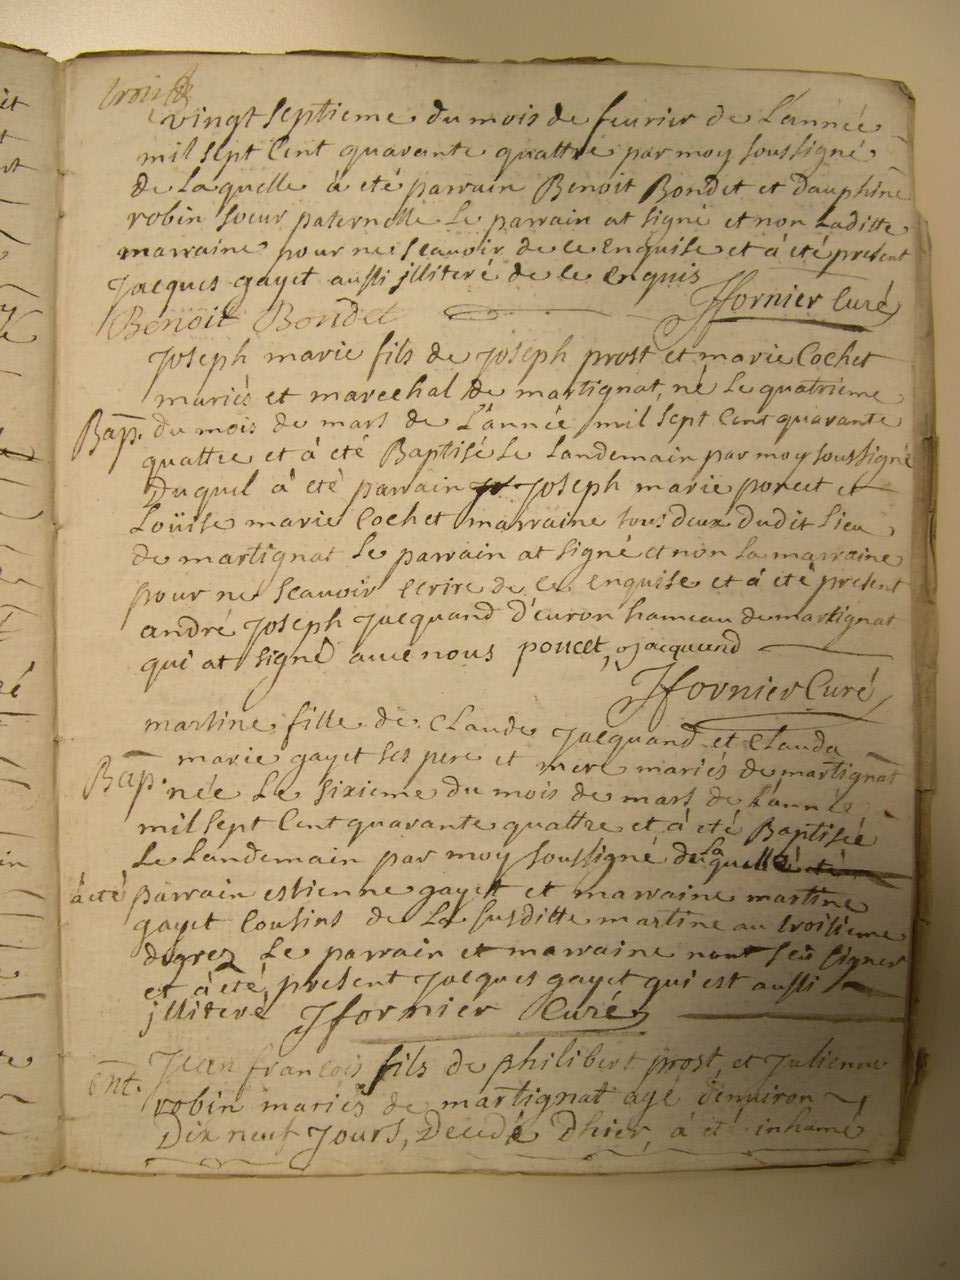 vingt septieme du mois de feurier de L'année
mil sept Cent quarante quattre par moy soussigné
de Laquelle à eté parrain Benoit Bondet et dauphine
robin soeur paternelle Le parrain at signé et non Laditte
marraine pour ne scauoir de ce Enquise et à eté present
Jacques gayet aussi jlliteré de ce enquis
Jfornier Curé
Benoit Bondet
Joseph marie fils de Joseph prost et marie Cochet
mariés et marechal de martignat, né Le quatrieme
Bap. du mois de mars de L'année mil sept Cent quarante
quattre et à eté Baptisé Le Landemain par moy soussigné
Duquel à eté parrain Joseph marie poncet et
Loüise marie Cochet marraine tous deux dudit Lieu
de martignat Le parrain at signé et non La marraine
pour ne scauoir ecrire de ce enquise et à eté present
andré Joseph Jacquand d'euron hameau de martignat
qui at signé auec nous poncet, Jacquand
Jfornier Curé
martine fille de Claude Jacquand et Clauda
marie gayet ses pere et mere mariés de martignat
Bap. née Le sixieme du mois de mars de L'année
mil sept Cent quarante quattre et à eté Baptisée
Le Landemain par moy soussigné de La quelle à eté
à eté parrain estienne gayet et marraine martine
gayet Cousins de La susditte martine au troisieme
degrez Le parrain et marraine nont sçû signer
et à eté present Jacques gayet qui est aussi
jlliteré Jfornier Curé
Ent. Jean françois fils de philibert prost, et Julienne
robin mariés de martignat agé d'enuiron
Dix neuf Jours, Decedé D'hier, à eté inhumé